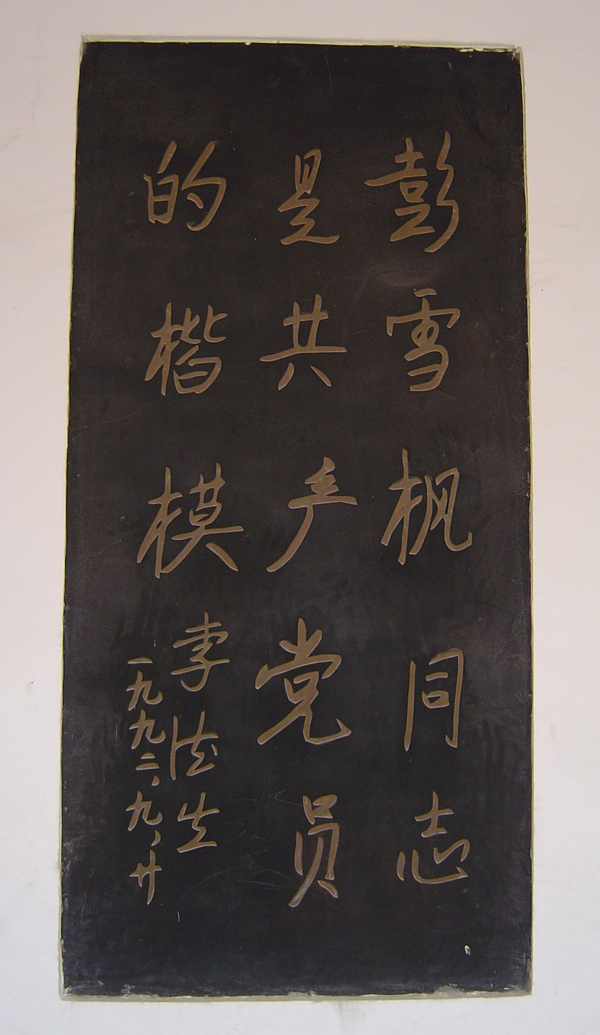 彭雪枫同志
是共产党员
的楷模
李德生
一九九二、九、廿